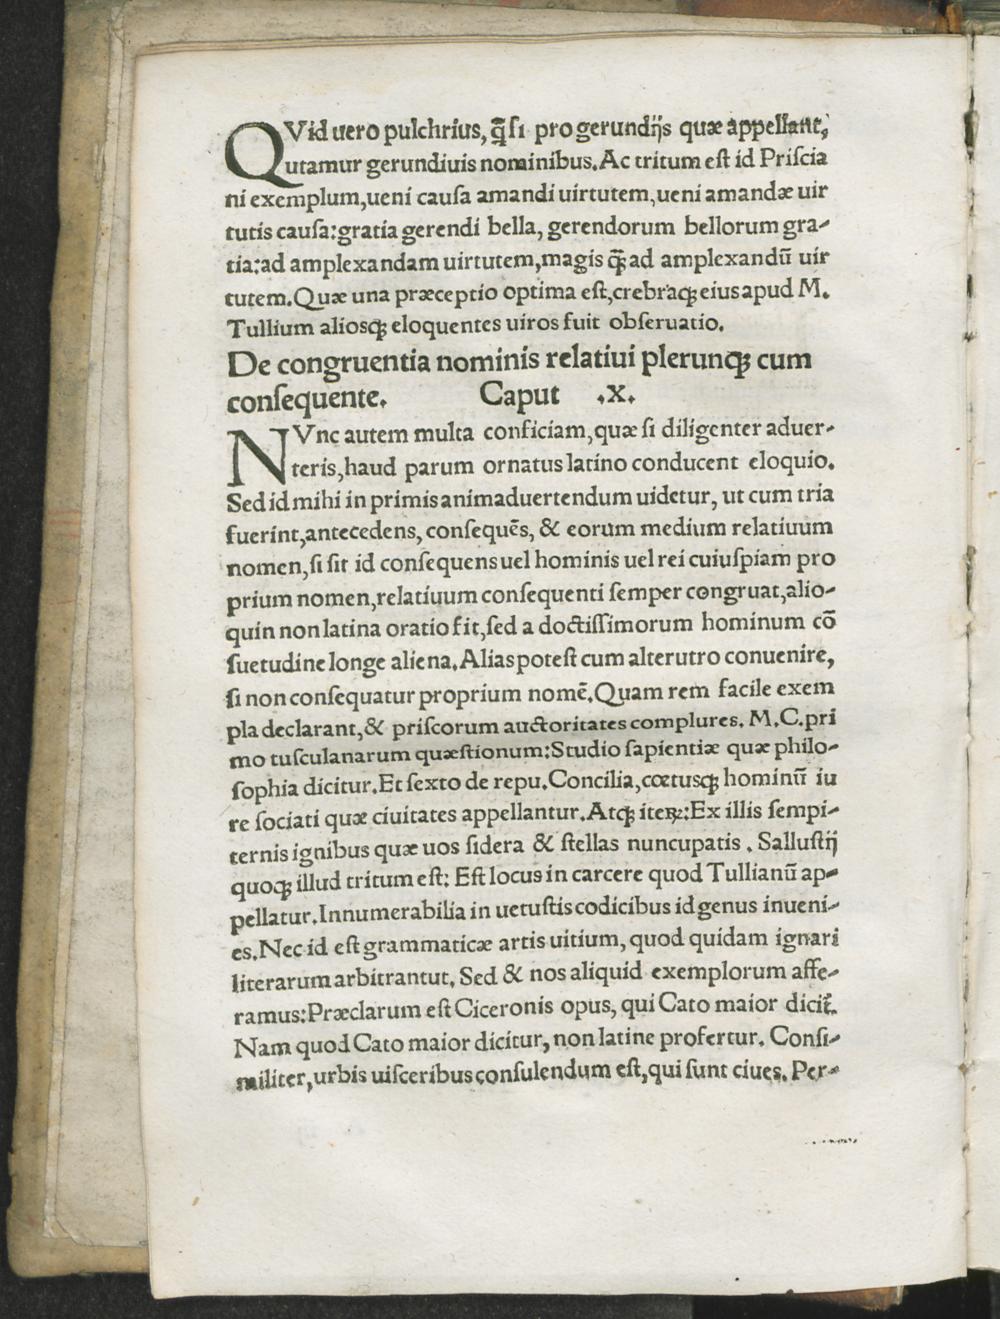 QVid uero pulchrius, q̃ ſi pro gerundijs quæ appellant̃,
utamur gerundiuis nominibus. Ac tritum eſt id Priſcia
ni exemplum, ueni cauſa amandi uirtutem, ueni amandæ uir
tutis cauſa: gratia gerendi bella, gerendorum bellorum gra-
tia: ad amplexandam uirtutem, magis q̃ ad amplexandū uir
tutem. Quæ una præceptio optima eſt, crebraq; eius apud M.
Tullium alioſq; eloquentes uiros fuit obſeruatio.
De congruentia nominis relatiui plerunq; cum
conſequente. Caput .X.
NVnc autem multa conficiam, quæ ſi diligenter aduer-
teris, haud parum ornatus latino conducent eloquio.
Sed id mihi in primis animaduertendum uidetur, ut cum tria
fuerint, antecedens, conſequēs, & eorum medium relatiuum
nomen, ſi ſit id conſequens uel hominis uel rei cuiuſpiam pro
prium nomen, relatiuum conſequenti ſemper congruat, alio-
quin non latina oratio fit, ſed a doctiſſimorum hominum cō
ſuetudine longe aliena. Alias poteſt cum alterutro conuenire,
ſi non conſequatur proprium nomē. Quam rem facile exem
pla declarant, & priſcorum auctoritates complures. M.C. pri
mo tuſculanarum quæſtionum: Studio ſapientiæ quæ philo-
ſophia dicitur. Et ſexto de repu. Concilia, cœtuſq; hominū iu
re ſociati quæ ciuitates appellantur. Atq; iteꝝ: Ex illis ſempi-
ternis ignibus quæ uos ſidera & ſtellas nuncupatis. Salluſtij
quoq; illud tritum eſt: Eſt locus in carcere quod Tullianū ap-
pellatur. Innumerabilia in uetuſtis codicibus id genus inueni-
es. Nec id eſt grammaticæ artis uitium, quod quidam ignari
literarum arbitrantut. Sed & nos aliquid exemplorum affe-
ramus: Præclarum eſt Ciceronis opus, qui Cato maior dicit̃.
Nam quod Cato maior dicitur, non latine profertur. Conſi-
militer, urbis uiſceribus conſulendum eſt, qui ſunt ciues. Per-